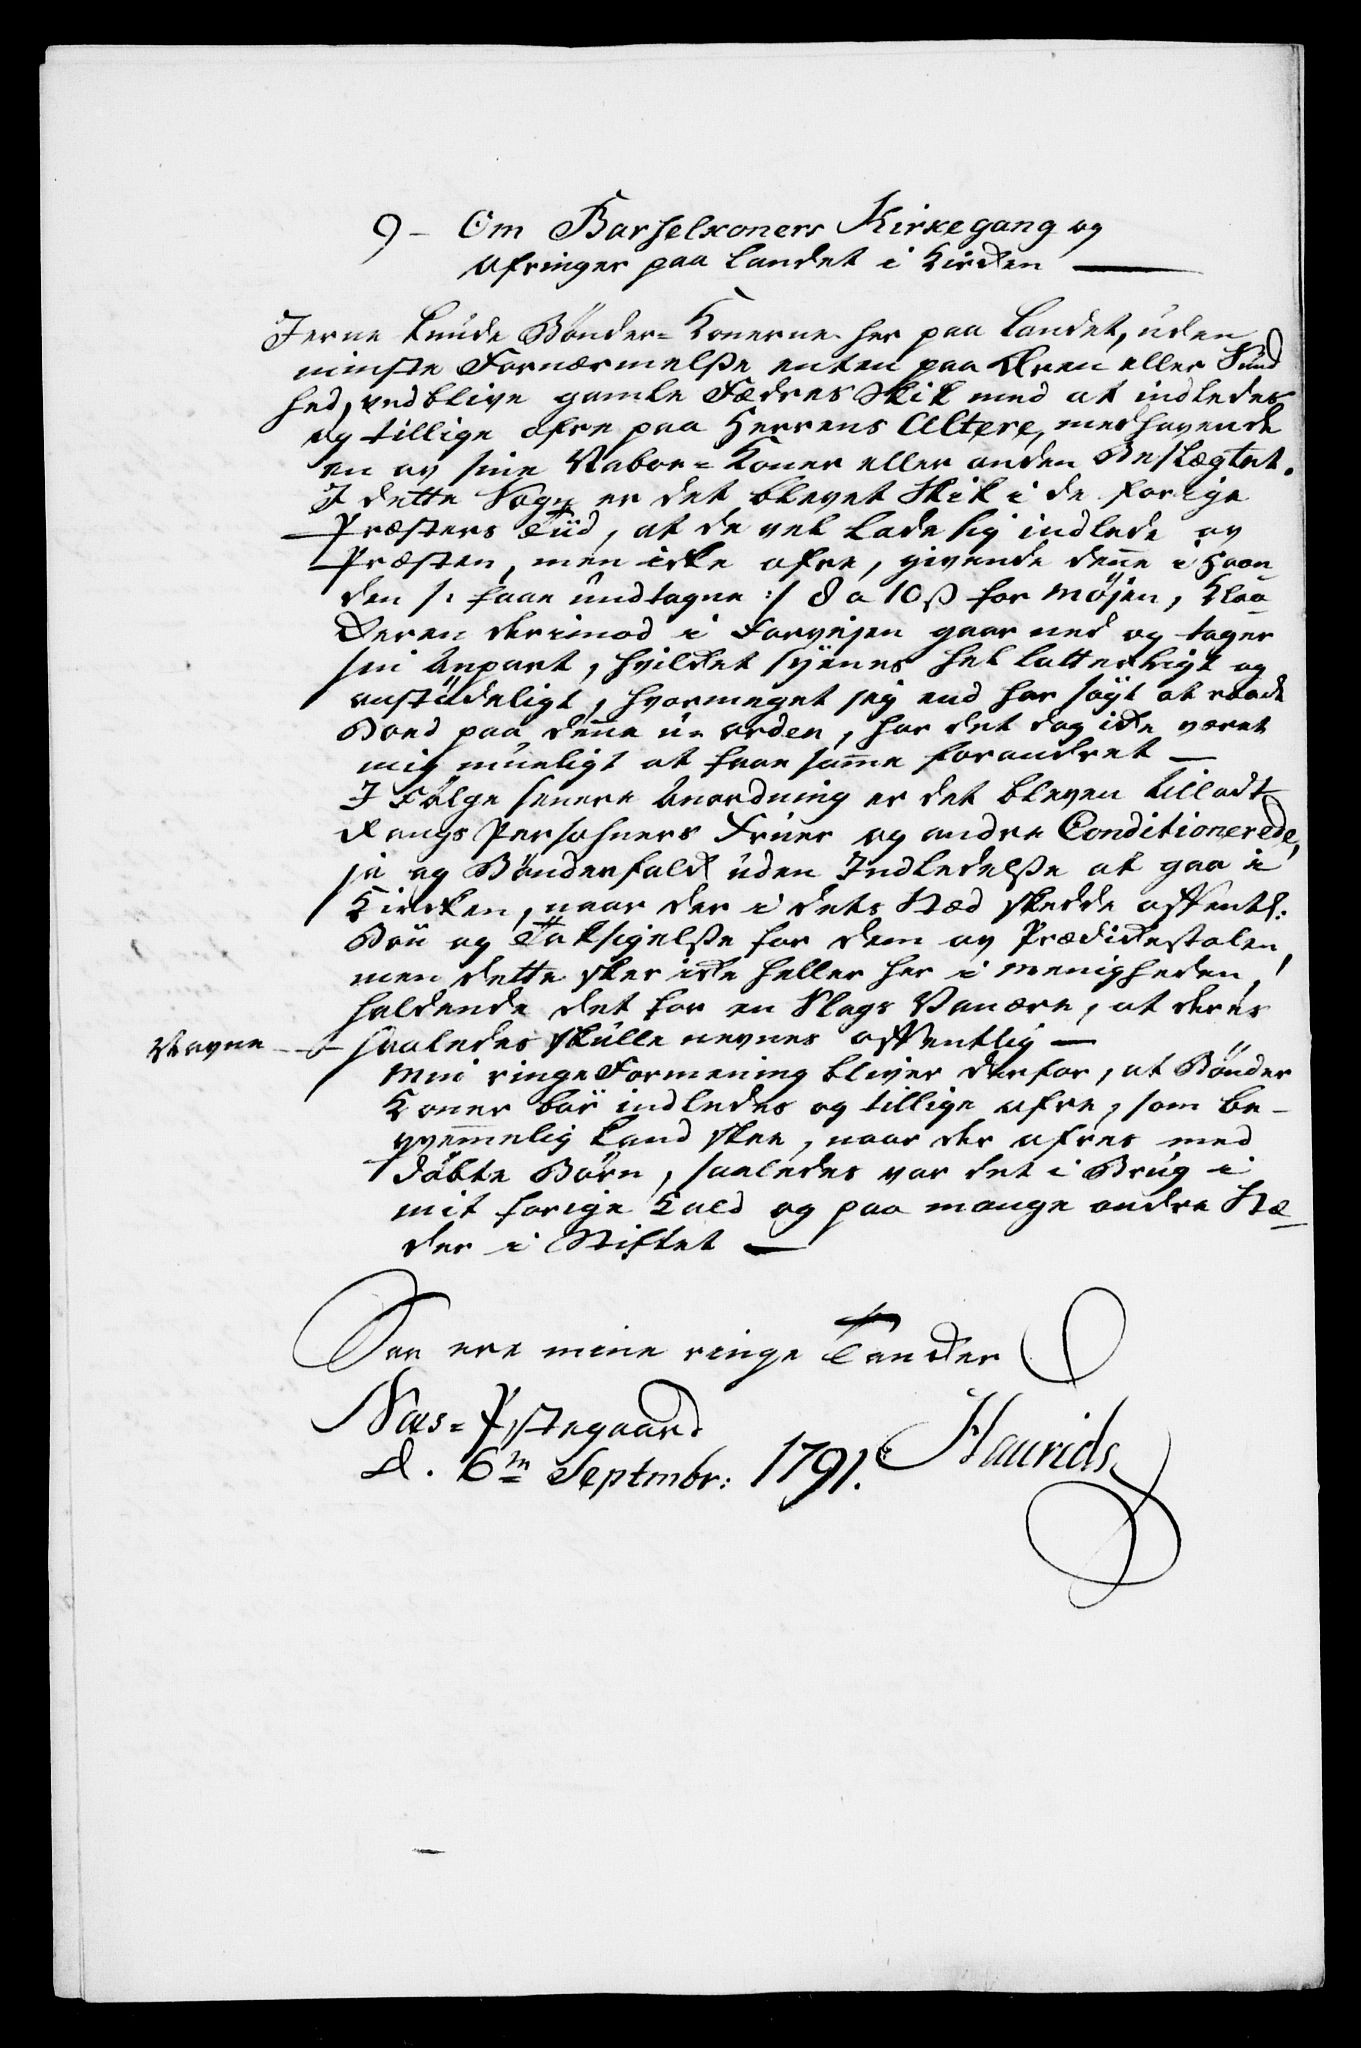 9 - Om Barselkoners Kirkegang og
Ofringer paa Landet i Kirken —
Jerne kunde Bönder= Konerne her paa Landet, uden
minste Fornærmelse enten paa Æren eller Sund
hed, vedblive gamle Fædres Skik med at indledes
og tillige ofre paa Herrens Altere, medhavende
en av sine Nabor= Koner eller anden Beslægtet.
I dette Sogn er det blevet Skik i de forrige
Præsters Tiid, at de vel lade sig indlede av
Præsten, men icke ofre, givende denne i Haan
den /: faae undtagne :/ 8 a 10 ß for Möjen, Klo
keren derimod i Forvejen gaar ned og tager
sin Anpart, hvilket synes heel latterligt og
anstödeligt, hvormeget jeg end har sögt at raade
Bod paa denne u= orden, har det dog icke været
mig mueligt at faae samme forandret —
I Fölge senere Anordning er det bleven tilladt
Rangs Personers Fruer og andre Conditionerede,
ja og Bönderfolk uden Indledelse at gaa i
Kircken, naar der i dets Stæd skedde offentl:
Bön og Taksigelse for dem av Prædickestolen,
men dette sker icke heller her i Menigheden,
holdende det for en Slags Vanære, at deres
Navne — saaledes skulle nevnes offentlig —
Min ringe Formening bliver derfor, at Bönder
Koner bör indledes og tillige ofre, som be-
qvemmelig kand skee, naar der ofres med
döbte Börn, saaledes var det i Brug i
mit forige Kald og paa mange andre Stæ
der i Stiftet —
Saa ere mine ringe Tancker
Næs= Præstegaard
d. 6te Septmbr: 1791. Haurids